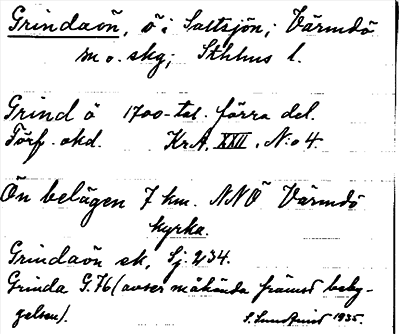 Grindaön, ö i Saltsjön; Värmdö
m o. skg; Sthlms l.
Grind ö 1700-tal. förra del.
Förf. okd. KrA, XXII, N:o 4
Ön belägen 7 km. NNÖ Värmdö
kyrka.
Grindaön ek, Sj. 234.
Grinda G.76 (avser måhända främst beby-
gelsen).
S. Lundquist 1935.